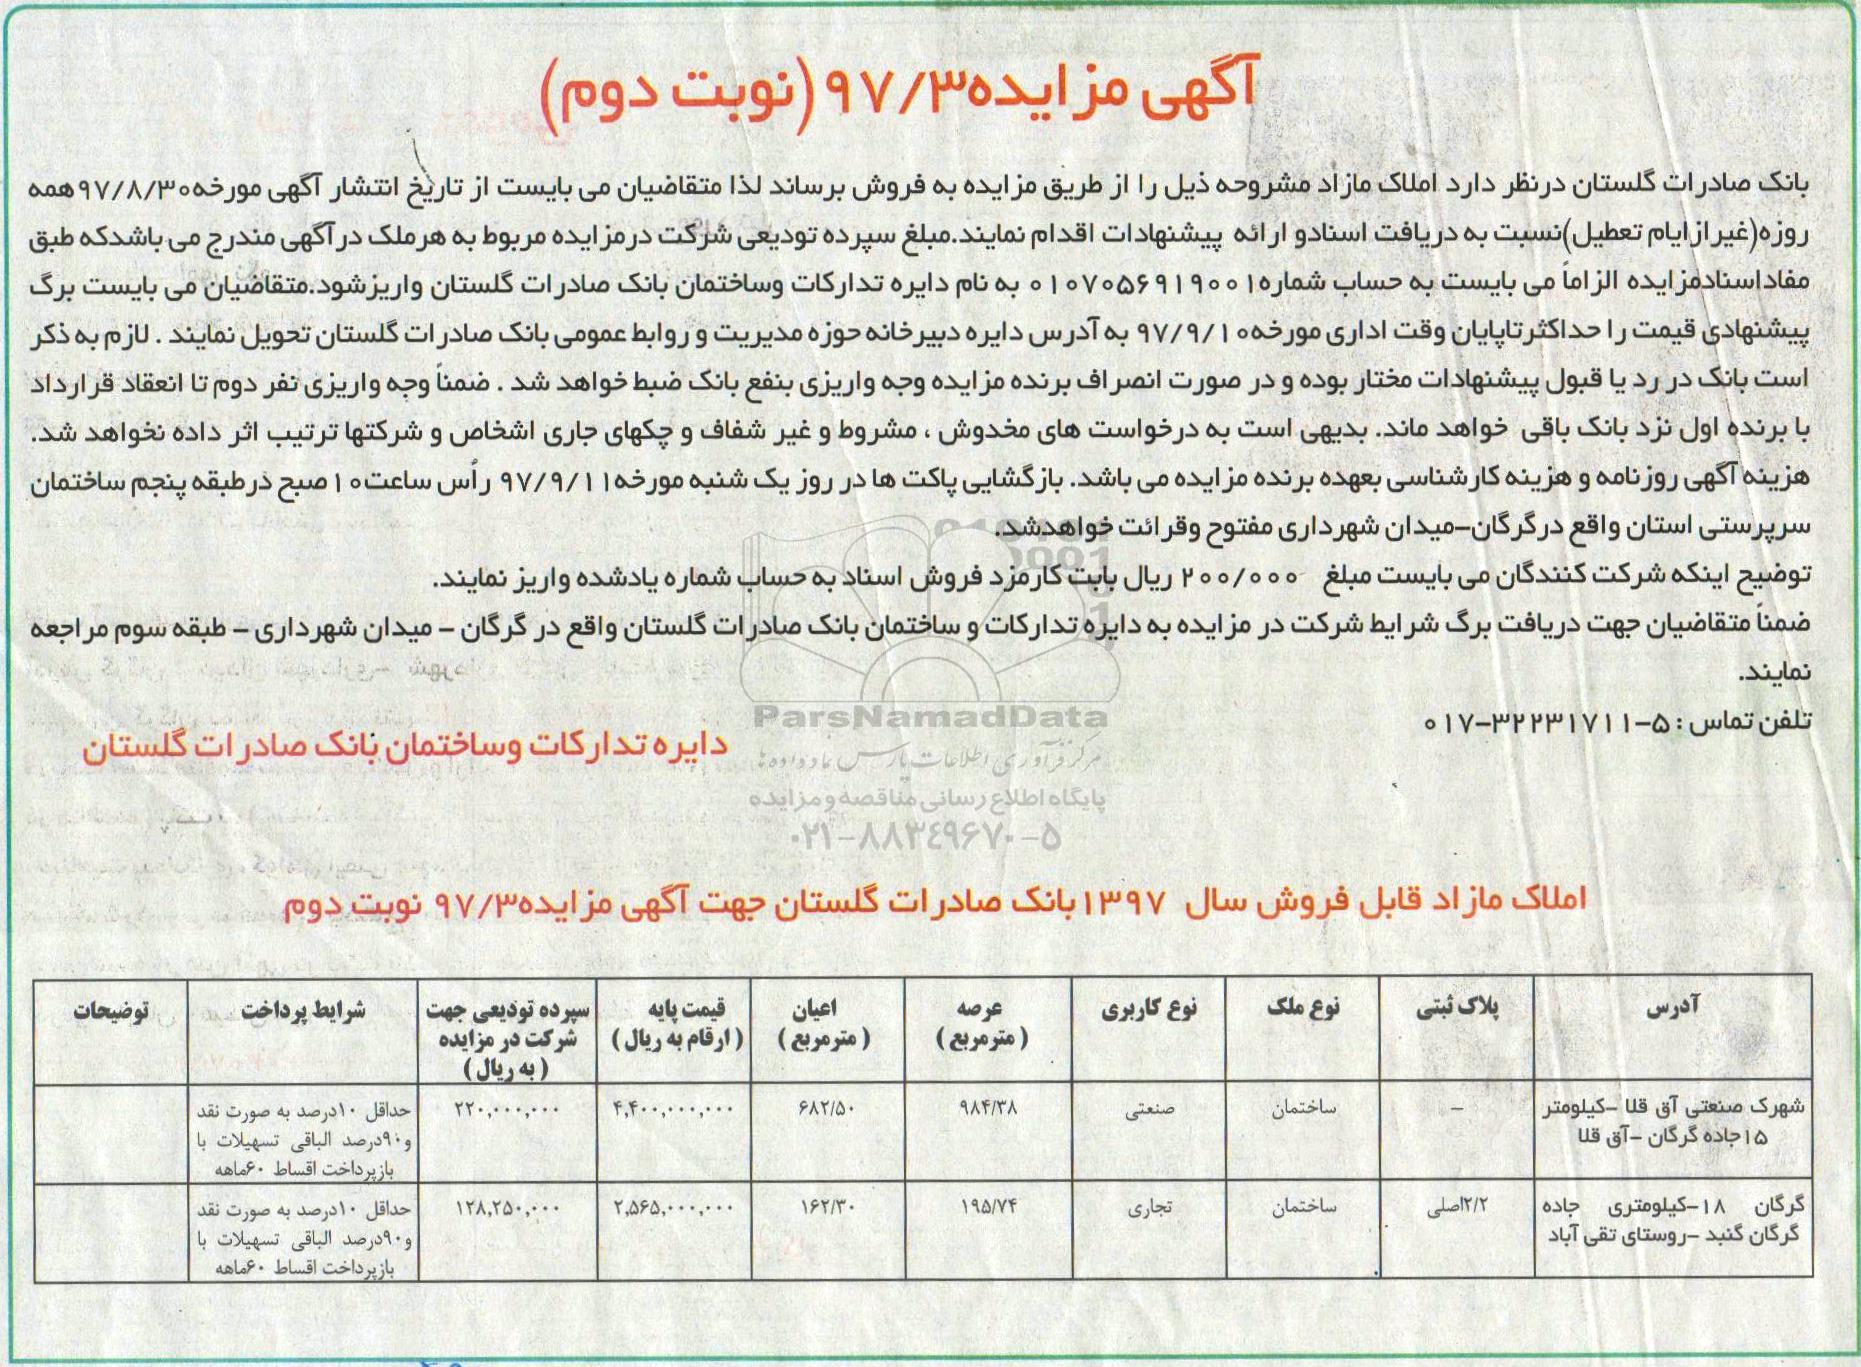 آگهی مزایده۹۷/۳ (نوبت دوم)
بانک صادرات گلستان درنظر دارد املاک مازاد مشروحه ذیل را از طریق مزایده به فروش برساند لذا متقاضیان می بایست از تاریخ انتشار آگهی مورخه۹۷/۸/۳۰همه
روزه(غیرازایام تعطیل)نسبت به دریافت اسنادو ارائه پیشنهادات اقدام نمایند.مبلغ سپرده تودیعی شرکت درمزایده مربوط به هرملک درآگهی مندرج می باشدکه طبق
مفاداسنادمزایده الزاماً می بایست به حساب شماره۰۱۰۷۰۵۶۹۱۹۰۰۱ به نام دایره تدارکات وساختمان بانک صادرات گلستان واریزشود.متقاضیان می بایست برگ
پیشنهادی قیمت را حداکثرتاپایان وقت اداری مورخه۹۷/۹/۱۰ به آدرس دایره دبیرخانه حوزه مدیریت و روابط عمومی بانک صادرات گلستان تحویل نمایند . لازم به ذکر
است بانک در رد یا قبول پیشنهادات مختار بوده و در صورت انصراف برنده مزایده وجه واریزی بنفع بانک ضبط خواهد شد . ضمناً وجه واریزی نفر دوم تا انعقاد قرارداد
با برنده اول نزد بانک باقی خواهد ماند. بدیهی است به درخواست های مخدوش ، مشروط و غیر شفاف و چکهای جاری اشخاص و شرکتها ترتیب اثر داده نخواهد شد.
هزینه آگهی روزنامه و هزینه کارشناسی بعهده برنده مزایده می باشد. بازگشایی پاکت ها در روز یک شنبه مورخه۹۷/۹/۱۱ رأس ساعت۱۰صبح درطبقه پنجم ساختمان
سرپرستی استان واقع درگرگان-میدان شهرداری مفتوح وقرائت خواهدشد.
توضیح اینکه شرکت کنندگان می بایست مبلغ ۲۰۰/۰۰۰ ریال بابت کارمزد فروش اسناد به حساب شماره یادشده واریز نمایند.
ضمناً متقاضیان جهت دریافت برگ شرایط شرکت در مزایده به دایره تدارکات و ساختمان بانک صادرات گلستان واقع در گرگان - میدان شهرداری - طبقه سوم مراجعه
نمایند.
تلفن تماس : ۵-۳۲۲۳۱۷۱۱-۰۱۷
دایره تدارکات وساختمان بانک صادرات گلستان
ParsNamadData
مرکز فرآوری اطلاعات پارس نماد داده ها
پایگاه اطلاع رسانی مناقصه و مزایده
۰۲۱-۸۸۳۴۹۶۷۰-۵
املاک مازاد قابل فروش سال ۱۳۹۷بانک صادرات گلستان جهت آگهی مزایده۹۷/۳ نوبت دوم
آدرس پلاک ثبتی نوع ملک نوع کاربری عرصه (مترمربع) اعیان (مترمربع) قیمت پایه (ارقام به ریال) سپرده تودیعی جهت شرکت در مزایده (به ریال) شرایط پرداخت توضیحات
شهرک صنعتی آق قلا -کیلومتر ۱۵جاده گرگان -آق قلا - ساختمان صنعتی ۹۸۴/۳۸ ۶۸۲/۵۰ ۴,۴۰۰,۰۰۰,۰۰۰ ۲۲۰,۰۰۰,۰۰۰ حداقل ۱۰درصد به صورت نقد و۹۰درصد الباقی تسهیلات با بازپرداخت اقساط ۶۰ماهه
گرگان ۱۸-کیلومتری جاده گرگان گنبد -روستای تقی آباد ۲/۲اصلی ساختمان تجاری ۱۹۵/۷۴ ۱۶۲/۳۰ ۲,۵۶۵,۰۰۰,۰۰۰ ۱۲۸,۲۵۰,۰۰۰ حداقل ۱۰درصد به صورت نقد و۹۰درصد الباقی تسهیلات با بازپرداخت اقساط ۶۰ماهه